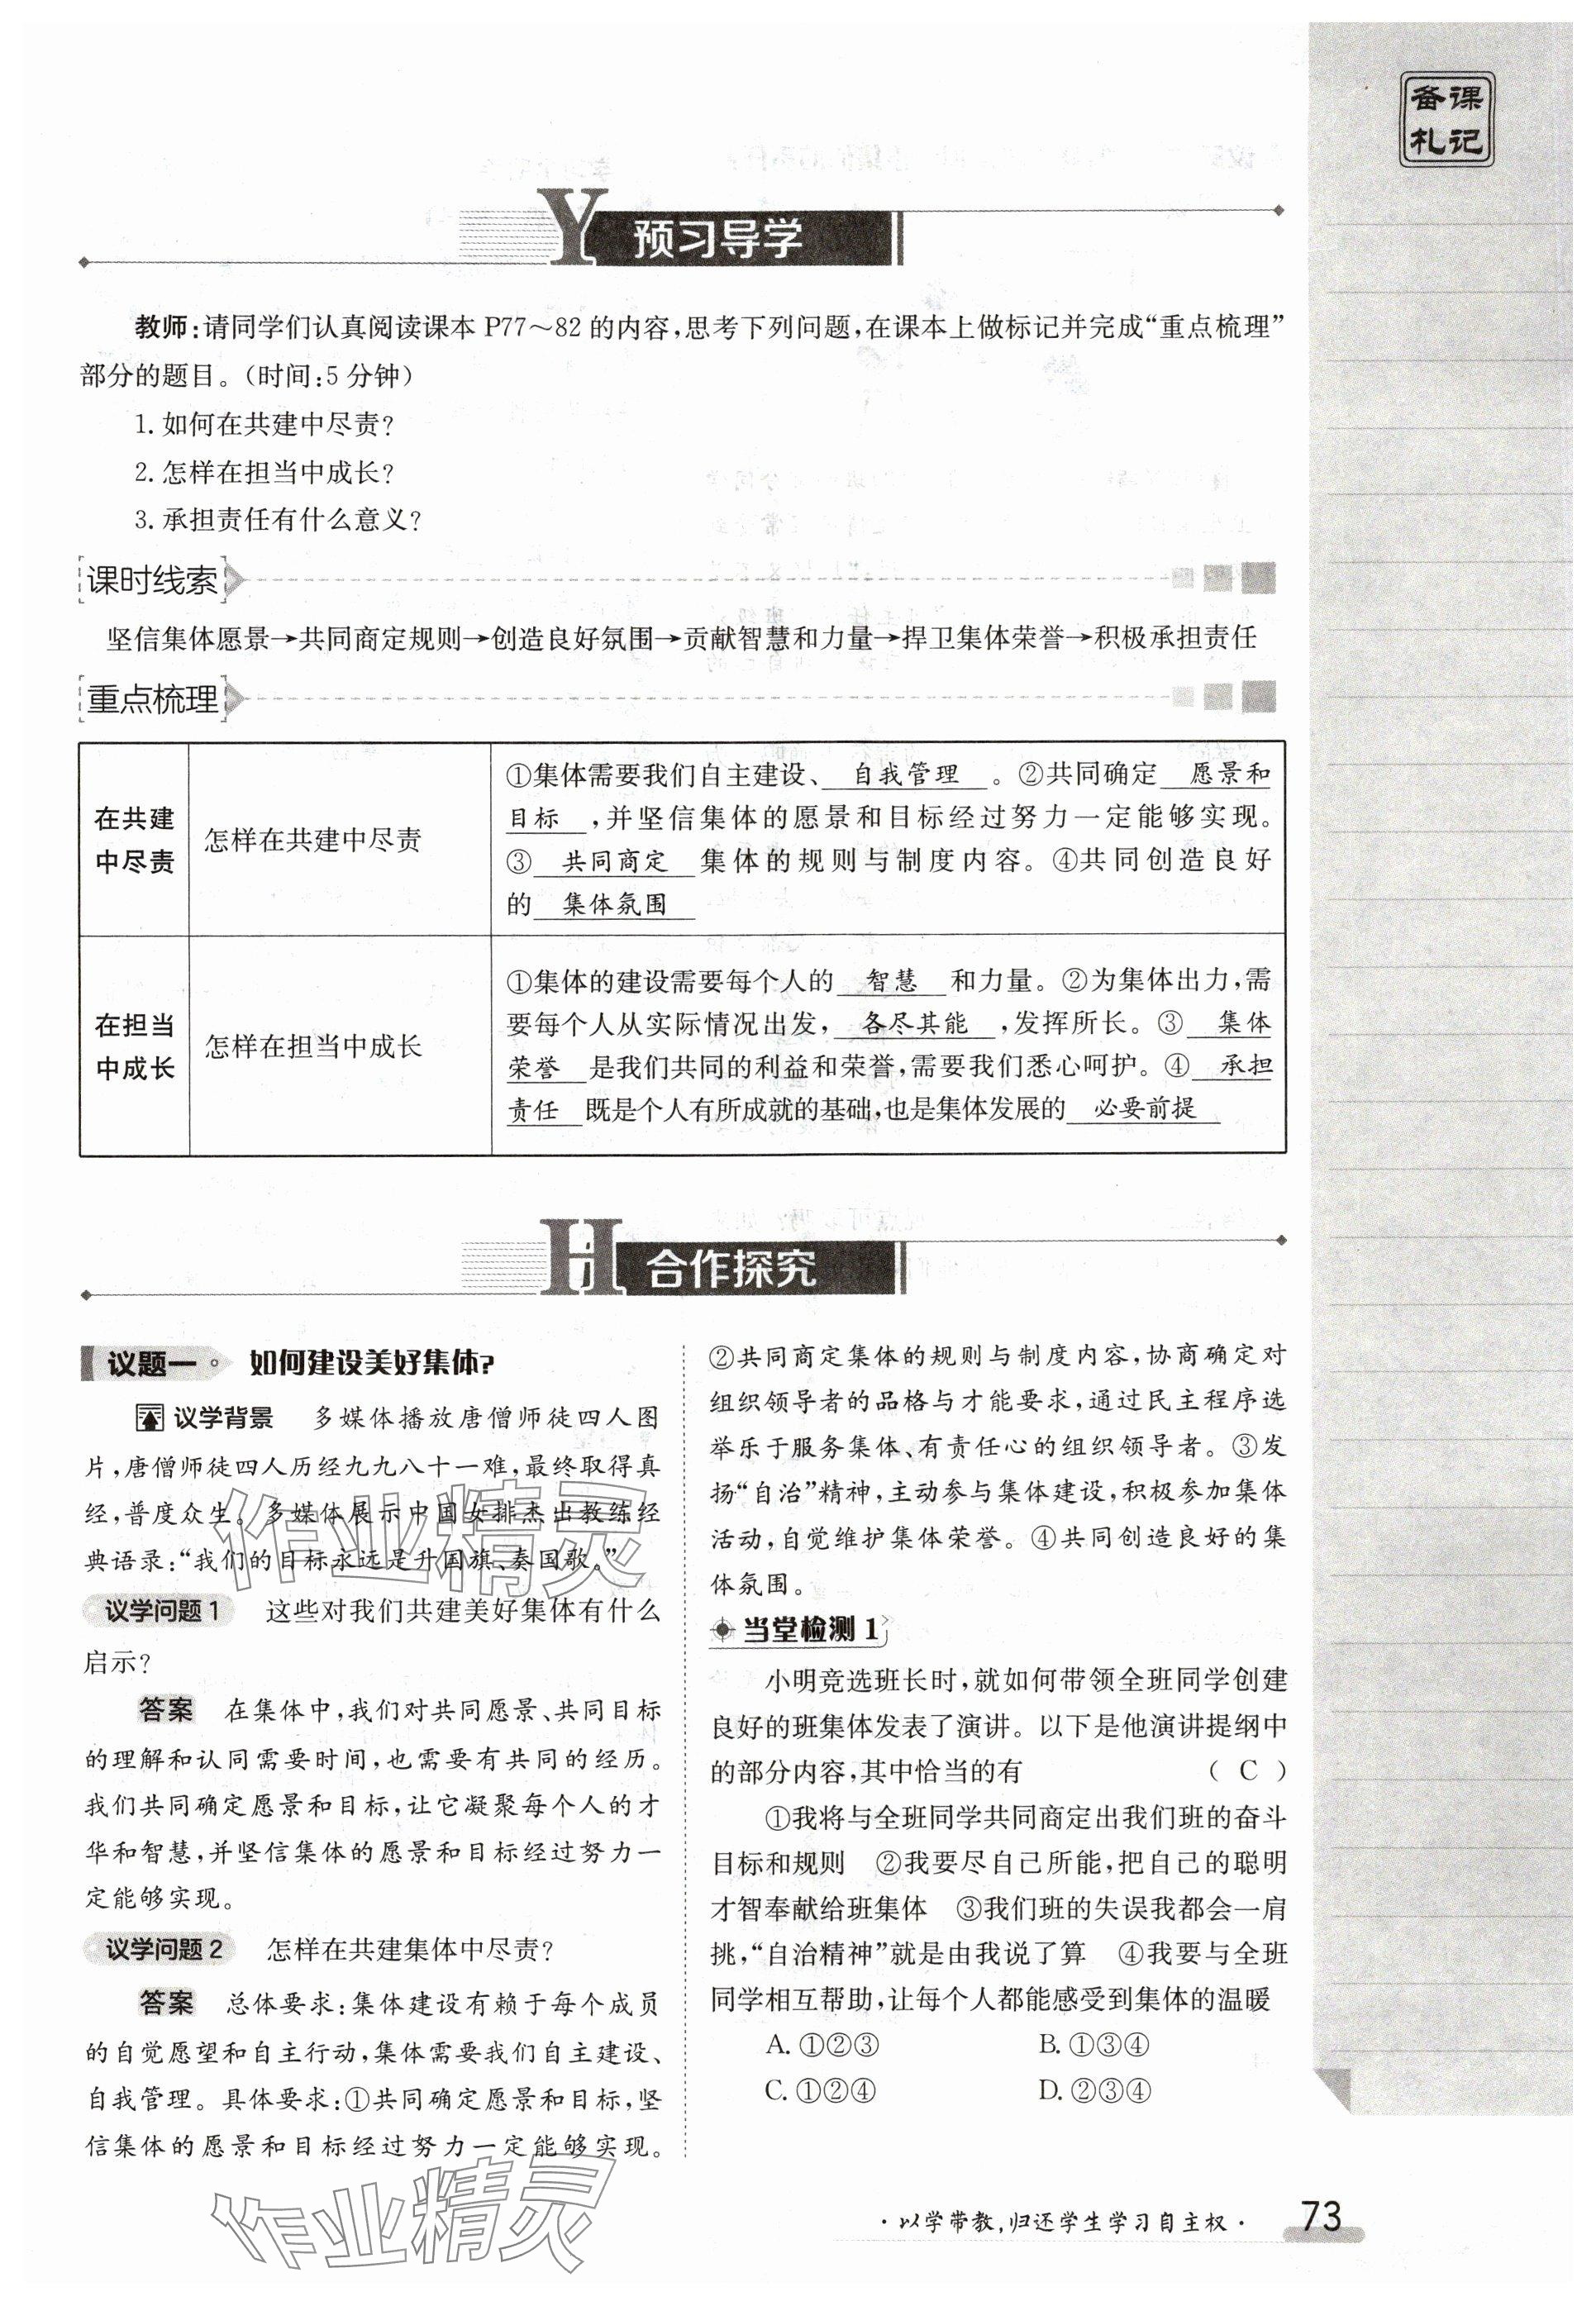 备课
札记
Y 预习导学
教师:请同学们认真阅读课本 P77～82 的内容,思考下列问题,在课本上做标记并完成“重点梳理”
部分的题目。(时间:5 分钟)
1. 如何在共建中尽责?
2. 怎样在担当中成长?
3. 承担责任有什么意义?
课时线索
坚信集体愿景→共同商定规则→创造良好氛围→贡献智慧和力量→捍卫集体荣誉→积极承担责任
重点梳理
在共建
中尽责
怎样在共建中尽责
①集体需要我们自主建设、 自我管理 。②共同确定 愿景和
目标 ,并坚信集体的愿景和目标经过努力一定能够实现。
③ 共同商定 集体的规则与制度内容。④共同创造良好
的 集体氛围
在担当
中成长
怎样在担当中成长
①集体的建设需要每个人的 智慧 和力量。②为集体出力,需
要每个人从实际情况出发, 各尽其能 ,发挥所长。③ 集体
荣誉 是我们共同的利益和荣誉,需要我们悉心呵护。④ 承担
责任 既是个人有所成就的基础,也是集体发展的 必要前提
H 合作探究
议题一 如何建设美好集体?
议学背景 多媒体播放唐僧师徒四人图
片,唐僧师徒四人历经九九八十一难,最终取得真
经,普度众生。多媒体展示中国女排杰出教练经
典语录:“我们的目标永远是升国旗、奏国歌。”
议学问题 1 这些对我们共建美好集体有什么
启示?
答案 在集体中,我们对共同愿景、共同目标
的理解和认同需要时间,也需要有共同的经历。
我们共同确定愿景和目标,让它凝聚每个人的才
华和智慧,并坚信集体的愿景和目标经过努力一
定能够实现。
议学问题 2 怎样在共建集体中尽责?
答案 总体要求:集体建设有赖于每个成员
的自觉愿望和自主行动,集体需要我们自主建设、
自我管理。具体要求:①共同确定愿景和目标,坚
信集体的愿景和目标经过努力一定能够实现。
②共同商定集体的规则与制度内容,协商确定对
组织领导者的品格与才能要求,通过民主程序选
举乐于服务集体、有责任心的组织领导者。③发
扬“自治”精神,主动参与集体建设,积极参加集体
活动,自觉维护集体荣誉。④共同创造良好的集
体氛围。
当堂检测 1
小明竞选班长时,就如何带领全班同学创建
良好的班集体发表了演讲。以下是他演讲提纲中
的部分内容,其中恰当的有 ( C )
①我将与全班同学共同商定出我们班的奋斗
目标和规则 ②我要尽自己所能,把自己的聪明
才智奉献给班集体 ③我们班的失误我都会一肩
挑,“自治精神”就是由我说了算 ④我要与全班
同学相互帮助,让每个人都能感受到集体的温暖
A. ①②③ B. ①③④
C. ①②④ D. ②③④
作业精灵
作业精灵
·以学带教,归还学生学习自主权· 73